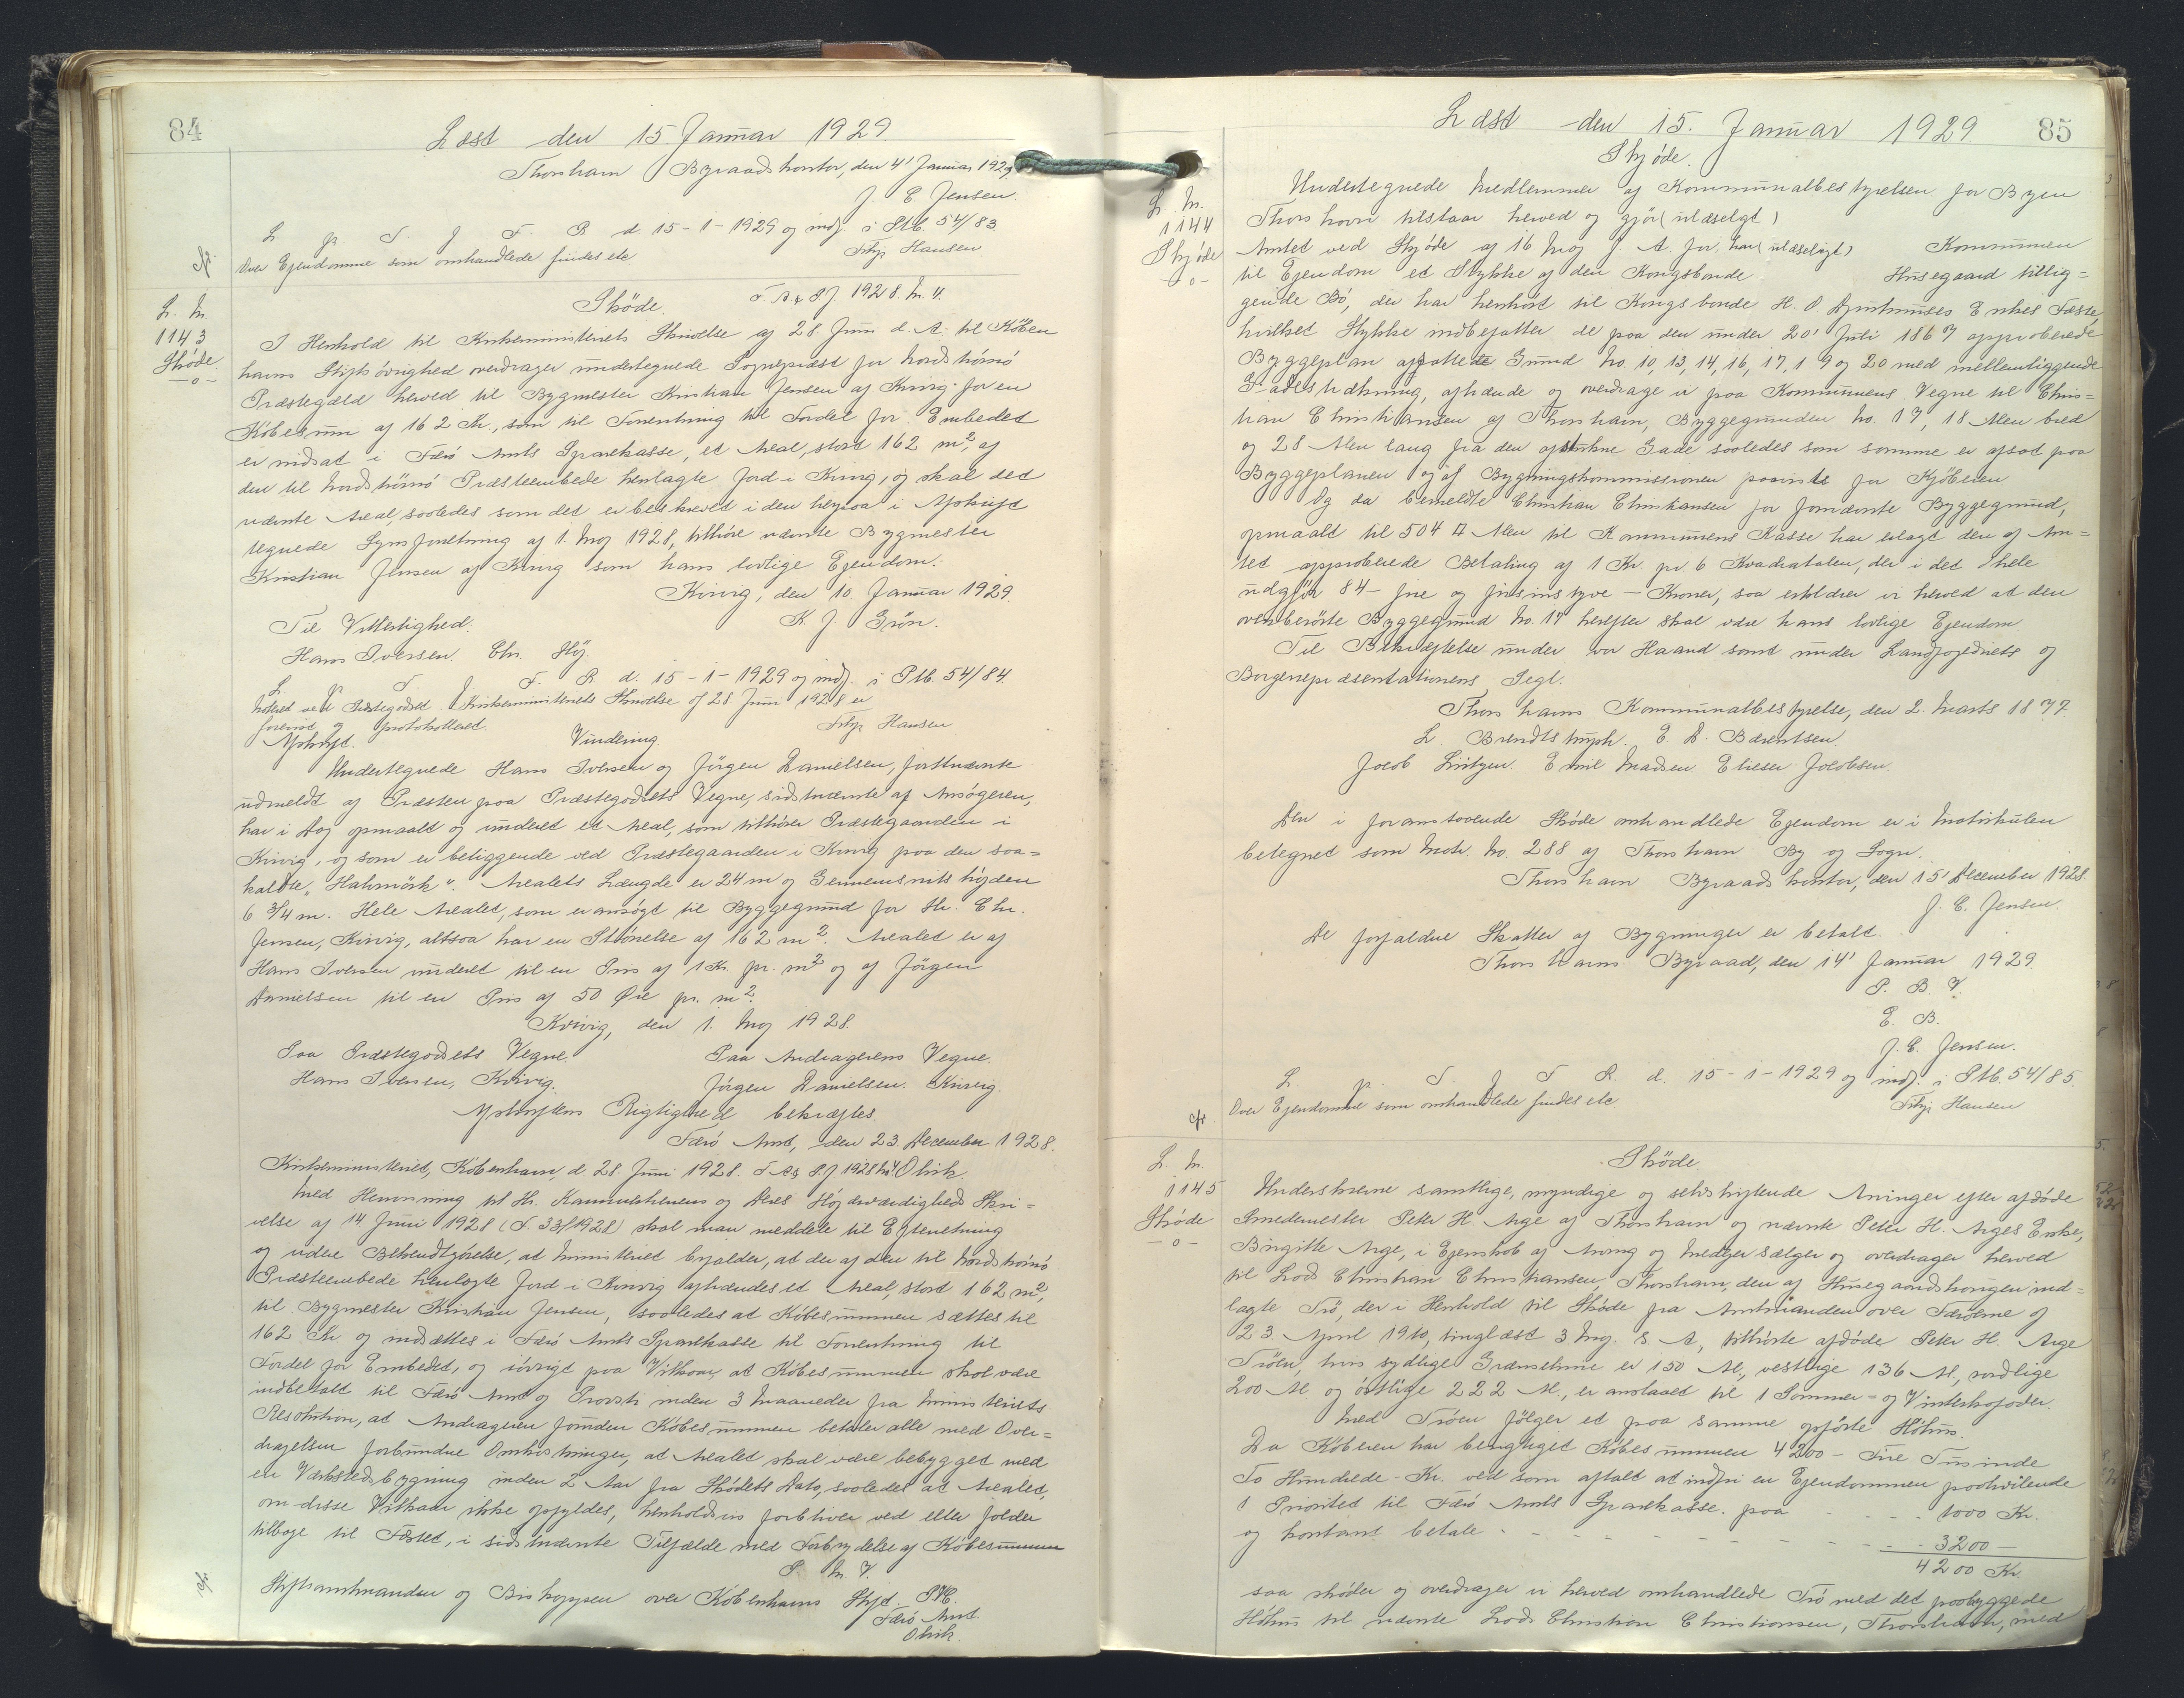 84
Læst den 15. Januar 1929.
Thorshavn Byraadskontor, den 4' Januar 1929
J. E. Jensen.
L p. T. J F. R. d 15-1-1929 og indf. i Skb. 54/83.
Over Ejendomme som omhandlede findes etc
Filip Hansen
L. Nr.
1143
Skøde.
-o-
Skøde. F. A. 8 J. 1928. Nr. 4.
I Henhold til Kirkeministeriets Skrivelse af 28 Juni d. A. til Køben
havns Stiftsøvrighed overdrager undertegnede Sognepræst for Nordstrømø
Præstegæld herved til Bygmester Kristian Jensen af Kvivig for en
Købesum af 162 Kr., som til Forrentning til Fordel for Embedet
er indsat i Færø Amts Sparekasse, et Areal, stort 162 m², af
den til Nordstrømø Præsteembede henlagte Jord i Kvivig, og skal det
nævnte Areal, saaledes som det er beskrevet i den herpaa i Afskrift
tegnede Synsforretning af 1. Maj 1928, tilhøre nævnte Bygmester
Kristian Jensen af Kvivig som hans lovlige Ejendom.
Kvivig, den 10. Januar 1929.
Til Vitterlighed. K. J. Grøn.
Hans Iversen. Chr. Høj.
L p T J F. R. d. 15-1-1929 og indf. i Skb. 54/84.
Noteret ved Præstegodset. Kirkeministeriets Skrivelse af 28. Juni 1928 er
forevist og protokolleret. Filip Hansen
Afskrift. Vurdering.
Undertegnede Hans Iversen og Jørgen Danielsen, førstnævnte
udmeldt af Præsten paa Præstegodsets Vegne, sidstnævnte af Ansøgeren,
har i Dag opmaalt og vurderet et Areal, som tilhører Præstegaarden i
Kvivig, og som er beliggende ved Præstegaarden i Kvivig paa den saa=
kaldte „Hahmörk“. Arealets Længde er 24 m og Gennemsnitshøjden
6 3/4 m. Hele Arealet, som er ansøgt til Byggegrund for Hr. Chr.
Jensen, Kvivig, altsaa har en Størrelse af 162 m². Arealet er af
Hans Iversen vurderet til en Pris af 1 Kr. pr. m² og af Jörgen
Danielsen til en Pris af 50 Øre pr. m².
Kvivig, den 1. Maj 1928.
Paa Præstegodsets Vegne. Paa Andragerens Vegne.
Hans Iversen, Kvivig. Jørgen Danielsen. Kvivig.
Afskriftens Rigtighed bekræftes.
Færø Amt, den 23. December 1928.
Kirkeministeriet, København, d 28. Juni 1928. F. A. 8. J. 1928 Nr. 4. Olrik.
Med Henvisning til Hr. Kammerherrens og Deres Højærværdigheds Skri=
velse af 14. Juni 1928 (S. 33/1928) skal man meddele til Efterretning
og videre Bekendtgørelse, at Ministeriet bifalder, at der af den til Nordstrømø
Præsteembede henlagte Jord i Kvivig afhændes et Areal, stort 162 m²,
til Bygmester Kristian Jensen, saaledes at Købesummen sættes til
162 Kr og indsættes i Færø Amts Sparekasse til Forrentning til
Fordel for Embedet, og iøvrigt paa Vilkaar, at Købesummen skal være
indbetalt til Færø Amt og Provsti inden 3 Maaneder fra Ministeriets
Resolution, at Andrageren foruden Købesummen betaler alle med Over=
dragelsen forbundne Omkostninger, at Arealet skal være bebygget med
en Værkstedsbygning inden 2 Aar fra Skødets Dato, saaledes at Arealet,
om disse Vilkaar ikke opfyldes, henholdsvis forbliver ved eller falder
tilbage til Fæstet, i sidstnævnte Tilfælde med Fortabelse af Købesummen
P. M. V.
Stiftsamtmanden og Biskoppen over Københavns Stift.
Færø Amt.
Olrik.
Læst den 15. Januar 1929 85
Skjøde.
L. Nr.
1144
Skjøde
-o-
Undertegnede Medlemmer af Kommunalbestyrelsen for Byen
Thorshavn tilstaar herved og gjör (ulæseligt)
Amtet ved Skjøde af 16. Maj f. A. for. har (ulæseligt) Kommunen
til Ejendom et Stykke af den Kongsbonde Husegaard tillig=
gende Bö, der har henhørt til Kongsbonde H. O Djurhuuses Enkes Fæste,
hvilket Stykke indbefatter de paa den under 20' Juli 1867 approberede
Byggeplan afsatte Grund No. 10, 13, 14, 16, 17, 19 og 20 med mellemliggende
Gadestrækning, afhænde og overdrage vi paa Kommunens Vegne til Chris=
tian Christiansen af Thorshavn, Byggegrunden No. 17, 18 Alen bred
og 28 Alen lang fra den afstukne Gade saaledes som samme er afsat paa
Byggeplanen og af Bygningskommissionen paavist for Kjøberen
Og da bemeldte Christian Christiansen for fornævnte Byggegrund,
opmaalt til 504 □ Alen til Kommunens Kasse har erlagt den af Am=
tet approberede Betaling af 1 Kr pr. 6 Kvadratalen, der i det Hele
udgjör 84 - fire og firsinstyve - Kroner, saa erklærer vi herved at den
ovenberörte Byggegrund No. 17 herefter skal være hans lovlige Ejendom
Til Bekræftelse under vor Haand samt under Landfogediets og
Borgerrepræsentationens Segl.
Thorshavns Kommunalbestyrelse, den 2. Marts 1877.
L. Brendtstruph. E. D. Bærentsen.
Jacob Lützen. Emil Madsen Elieser Jacobsen.
Den i foranstaaende Skøde omhandlede Ejendom er i Matrikulen
betegnet som Matr. No. 288 af Thorshavn By og Sogn.
Thorshavn Byraadskontor, den 15' December 1928.
J. E. Jensen.
De forfaldne Skatter af Bygninger er betalt.
Thorshavns Byraad, den 14' Januar 1929.
P. B. V.
E. B.
J. E. Jensen.
L. p. T J F R. d. 15-1-1929 og indf. i Skb. 54/85.
Over Ejendomme som omhandlede findes etc Filip Hansen
L. Nr.
1145
Skøde
-o-
Skøde.
Underskrevne samtlige, myndige og selvskiftende Arvinger efter afdøde
Smedemester Peter H. Arge af Thorshavn og nævnte Peter H. Arges Enke,
Birgitte Arge, i Egenskab af Arving og Medejer sælger og overdrager herved
til Lods Christian Christiansen, Thorshavn, den af Husegaardshaugen ind=
lagte Trø, der i Henhold til Skøde fra Amtmanden over Færøerne af
23. April 1910, tinglæst 3 Maj s. A, tilhørte afdøde Peter H. Arge
Trøen, hvis sydlige Grænselinie er 150 Al., vestlige 136 Al., nordlige
200 Al og östlige 222 Al., er anslaaet til 1 Sommer- og Vinterkofoder.
Med Trøen følger et paa samme opførte Høhus.
Da Køberen har berigtiget Købesummen 4200 - Fire Tusinde
To Hundrede - Kr. ved som aftalt at indfri en Ejendommen paahvilende
1 Prioritet til Færø Amts Sparekasse. paa - - - - 1000 Kr.
og kontant betale - - - - - - 3200 -
4200 Kr.
saa skøder og overdrager vi herved omhandlede Trø med det paabyggede
Høhus til nævnte Lods Christian Christiansen, Thorshavn, med